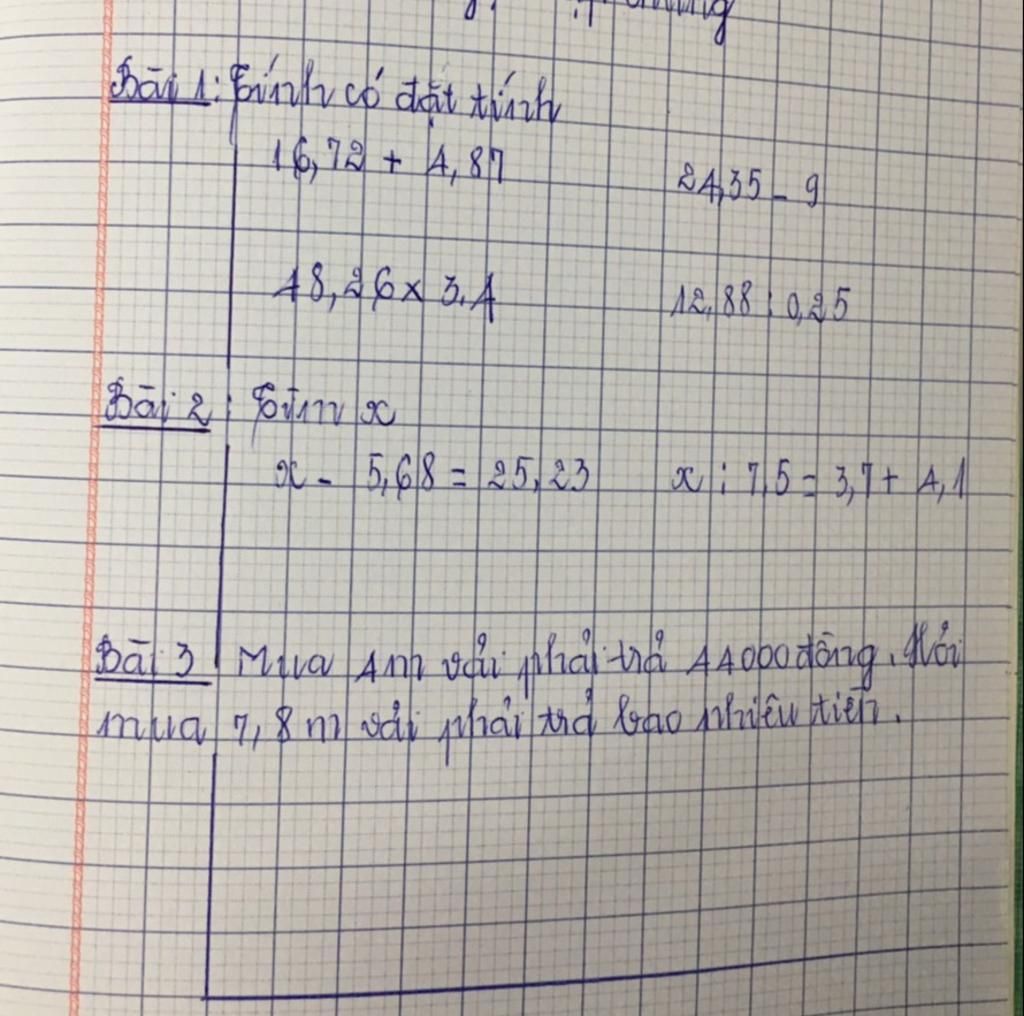 Bài 1: Tính có đặt tính
16,72 + 4,87 24,35 - 9
48,26 x 3,4 12,88 : 0,25
Bài 2: Tìm x
x - 5,68 = 25,23 x : 7,5 = 3,7 + 4,1
Bài 3 Mua 4m vải phải trả 44000 đồng. Hỏi
mua 7,8 m vải phải trả bao nhiêu tiền.